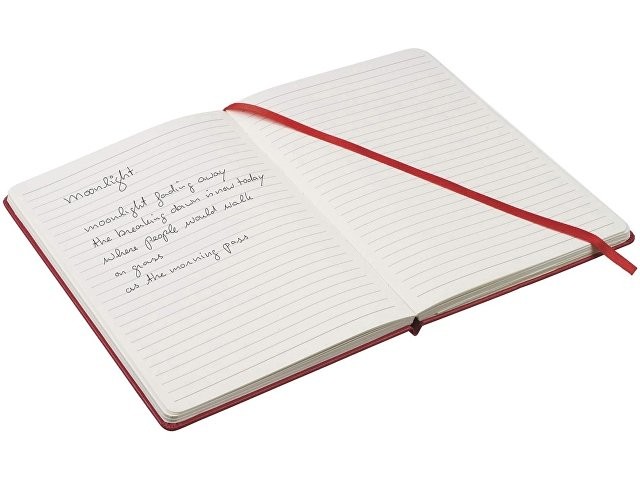 Moonlight.
moonlight fading away
the breaking down is now today
where people would walk
on grass
as the morning pass